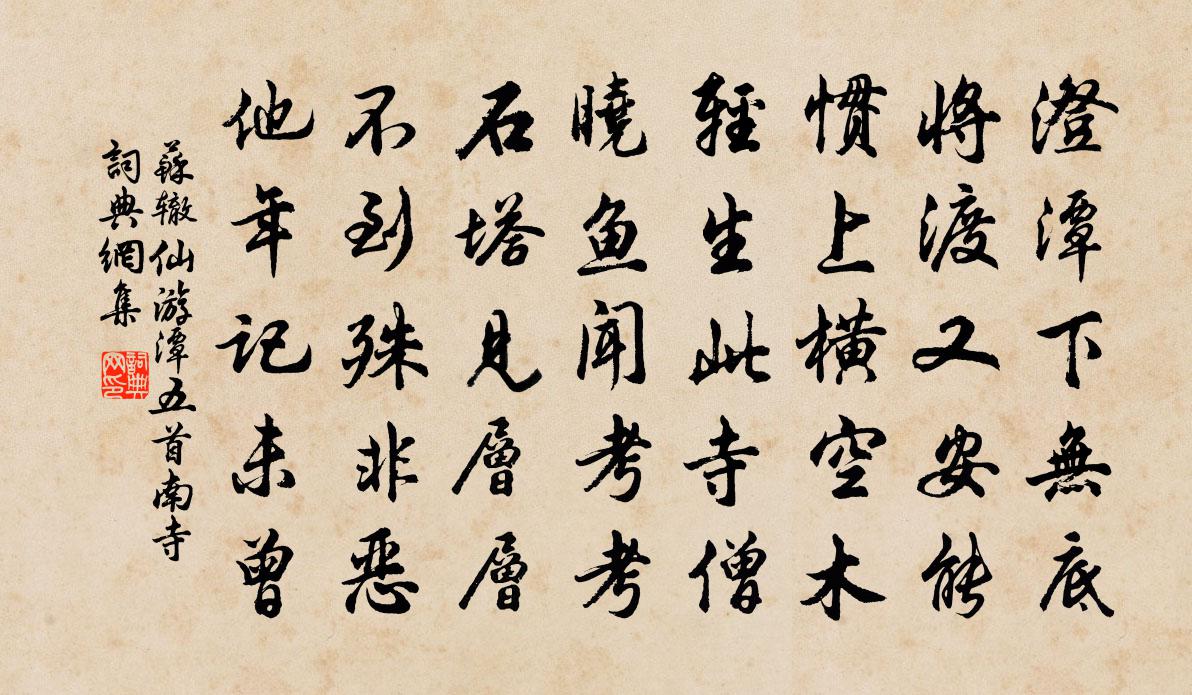 澄潭下無底
將渡又安能
慣上橫空木
輕生此寺僧
曉魚聞考考
石塔見層層
不到殊非惡
他年記未曾
蘇辙仙游潭五首南寺
詞典網集
詞典网印